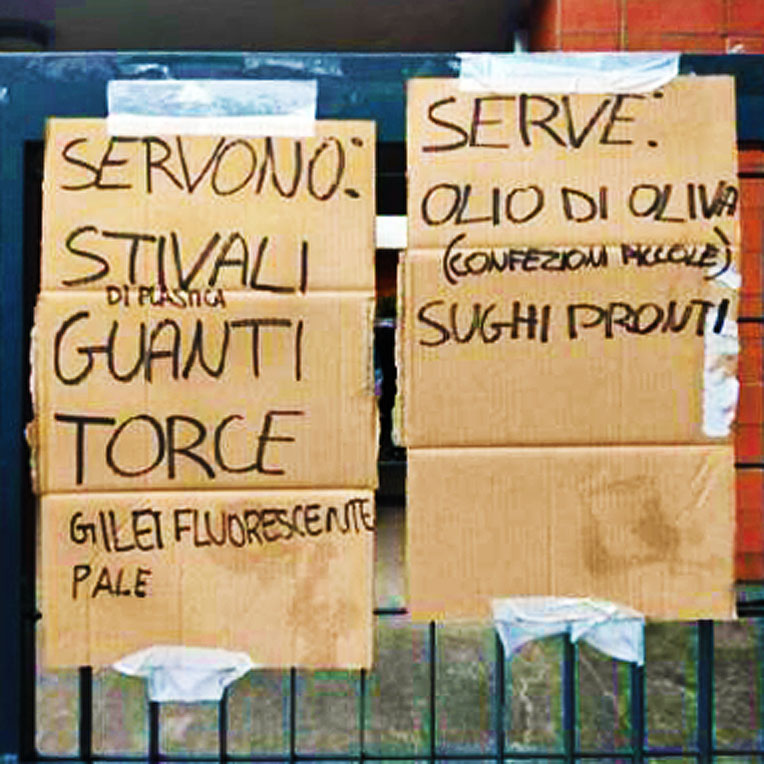 SERVONO:
STIVALI
DI PLASTICA
GUANTI
TORCE
GILET FLUORESCENTE
PALE
SERVE:
OLIO DI OLIVA
(CONFEZIONI PICCOLE)
SUGHI PRONTI